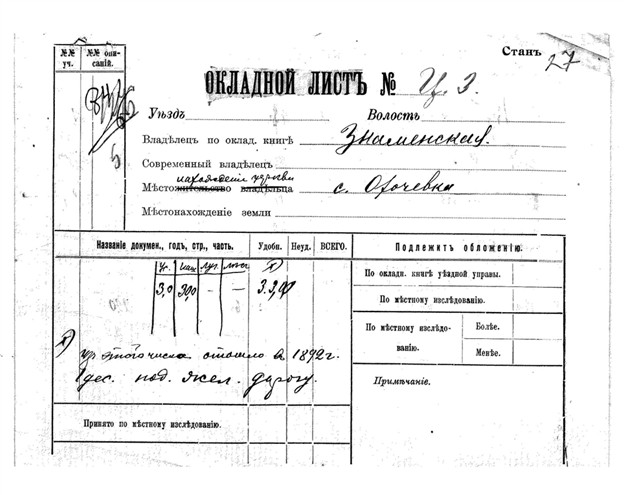 №№ уч.
№№ описаній.
Станъ 27
ОКЛАДНОЙ ЛИСТЪ № Ц. 3.
Уѣздъ
Волость
Владѣлецъ по оклад. книгѣ Знаменская
Современный владѣлецъ
нахожденіе церкви
Мѣстожительство владѣльца с.
Мѣстонахожденіе земли
Названіе докумен., годъ, стр., часть.
Удобн.
Неуд.
ВСЕГО.
Подлежитъ обложенію.
По окладн. книгѣ уѣздной управы.
По мѣстному изслѣдованію.
По мѣстному изслѣдованію.
Болѣе.
Менѣе.
Примѣчаніе.
3,0 30,0 - -
изъ этого числа отошло въ 1892 г.
1 дес. под. жел. дорогу.
Принято по мѣстному изслѣдованію.